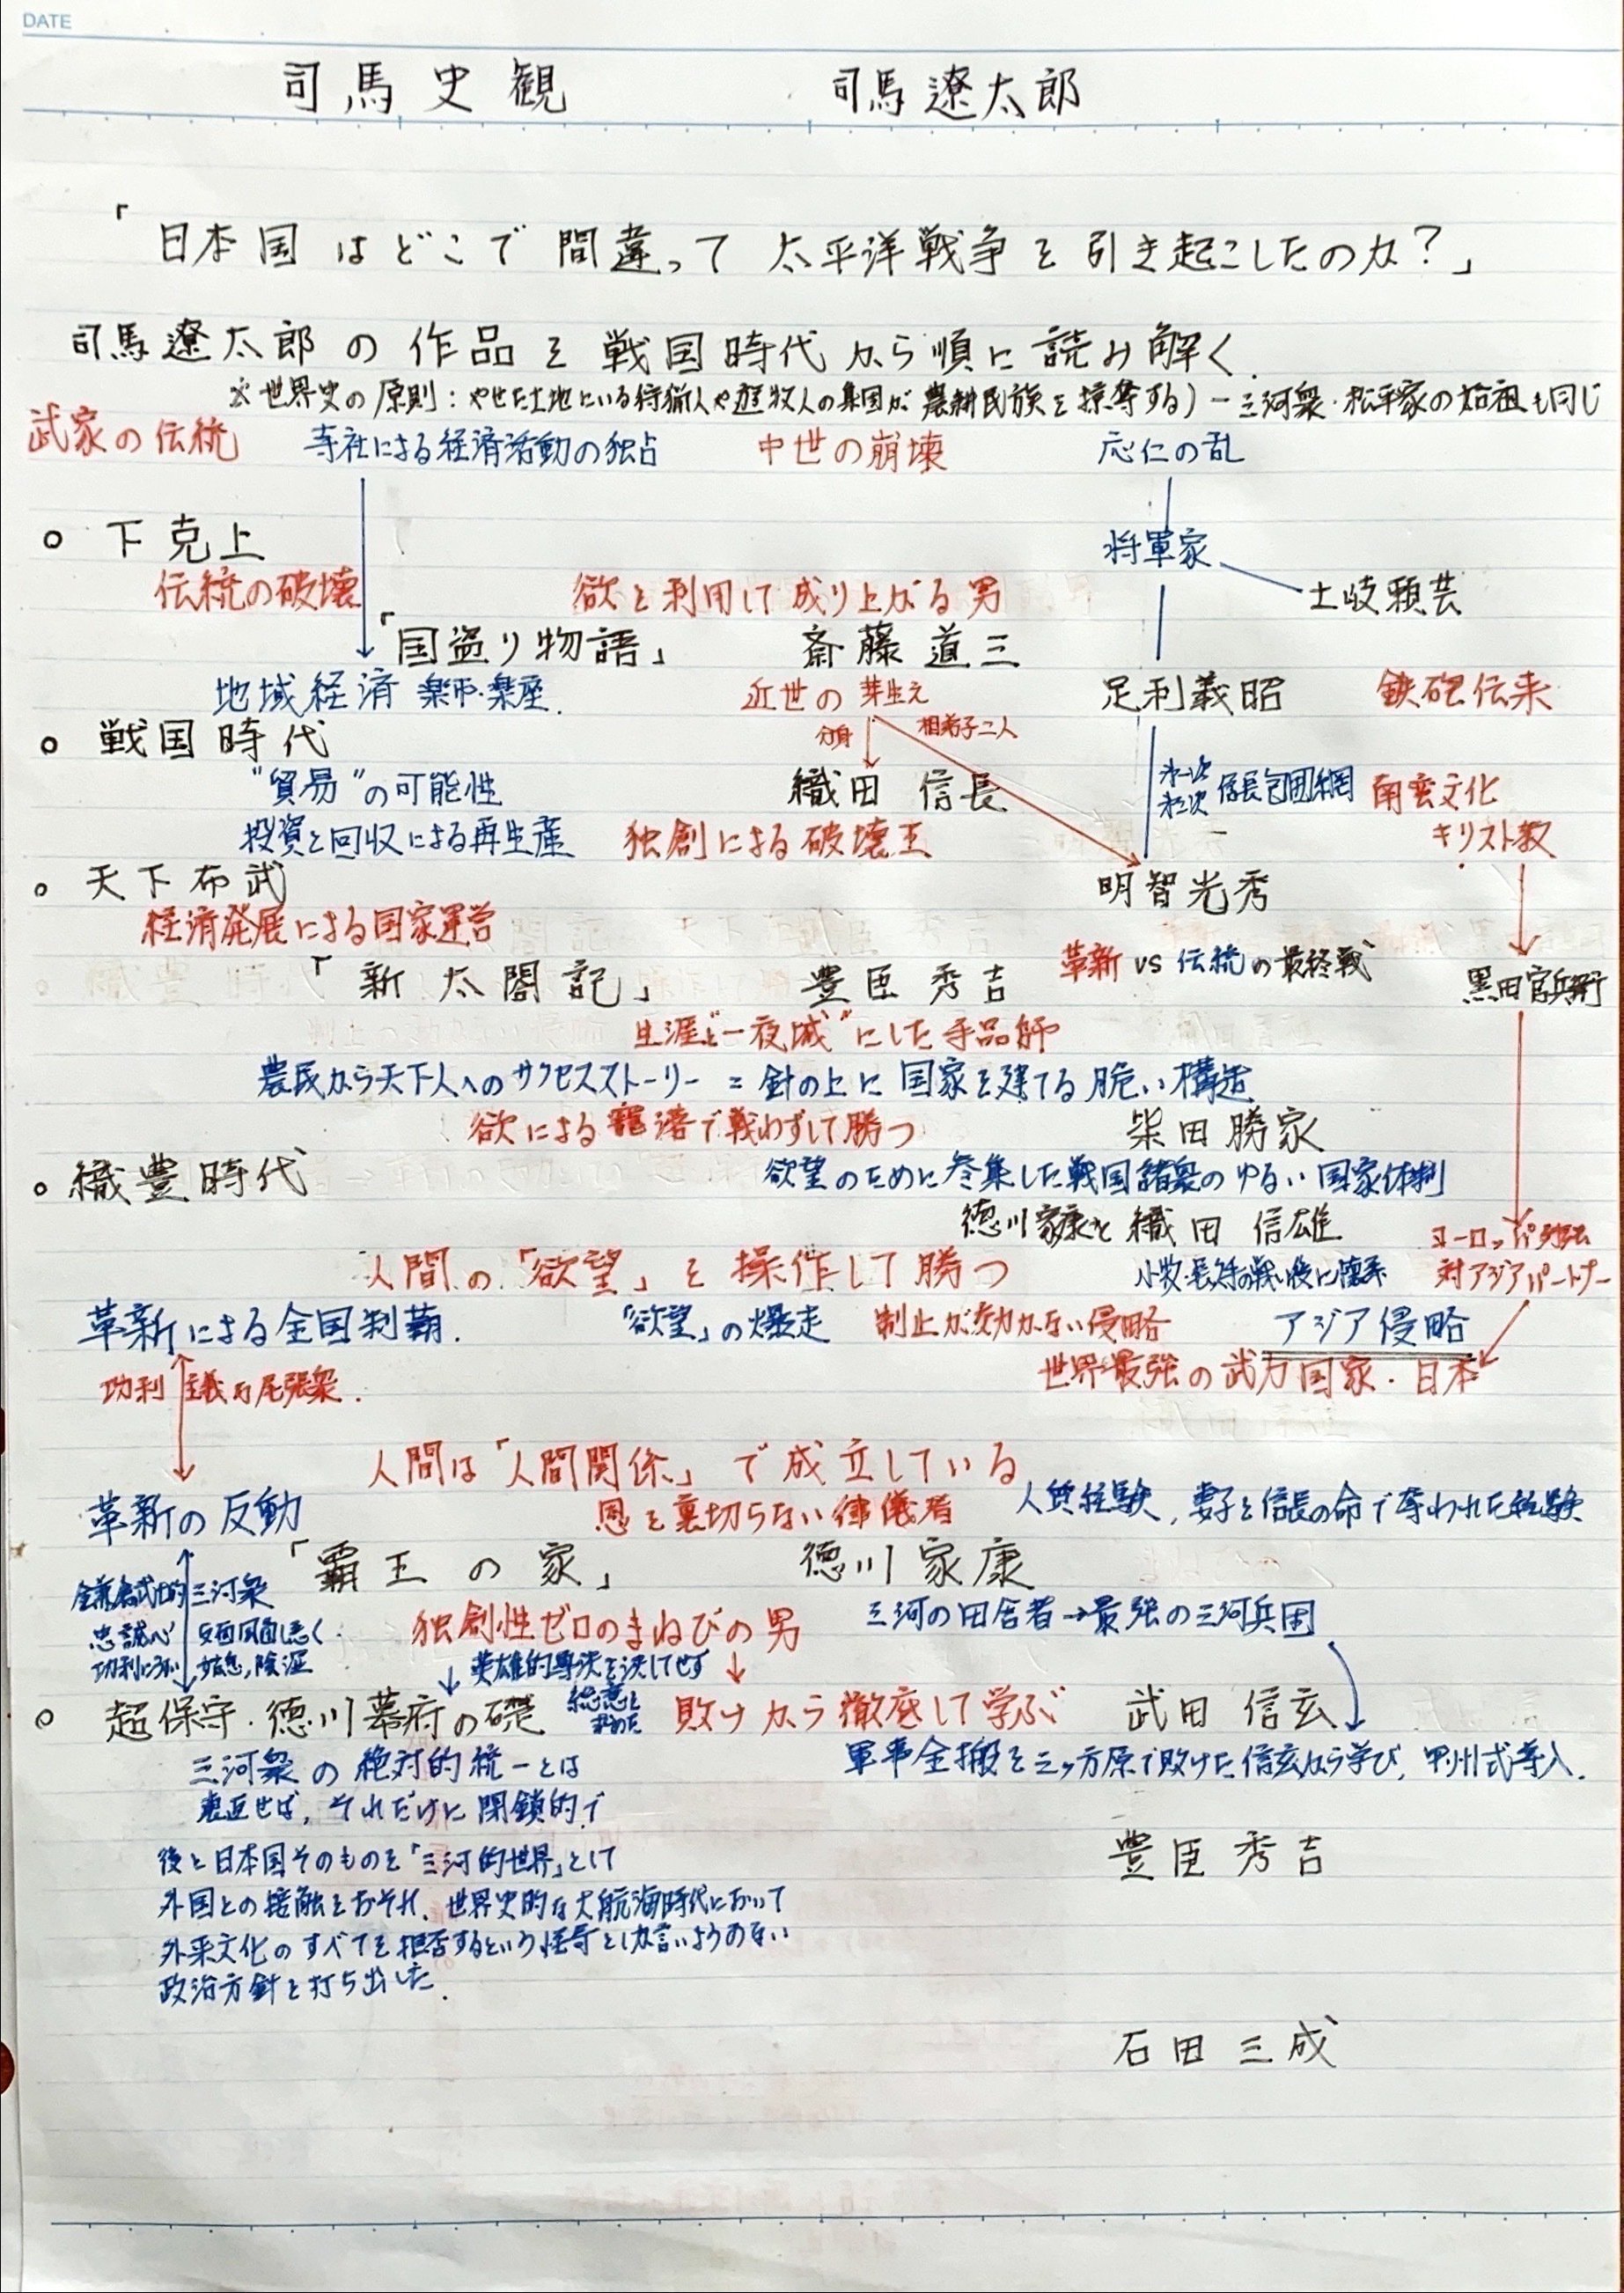 DATE
司馬史観 司馬遼太郎
「日本国はどこで間違って太平洋戦争を引き起こしたのか?」
司馬遼太郎の作品を戦国時代から順に読み解く.
※世界史の原則:やせた土地にいる狩猟人や遊牧人の集団が農耕民族を掠奪する)ー三河衆・松平家の始祖も同じ
武家の伝統 寺社による経済活動の独占 中世の崩壊 応仁の乱
将軍家
○ 下克上
伝統の破壊 欲を利用して成り上がる男 土岐頼芸
「国盗り物語」 斎藤道三
地域経済 楽市・楽座. 近世の芽生え 足利義昭 鉄砲伝来
分身 相弟子二人
○ 戦国時代
"貿易"の可能性 織田信長 信長包囲網 南蛮文化
投資と回収による再生産 独創による破壊王 キリスト教
○ 天下布武 明智光秀
経済発展による国家運営
革新 vs 伝統の最終戦
「新太閤記」 豊臣秀吉 黒田官兵衛
生涯を"一夜城"にした手品師
農民から天下人へのサクセスストーリー = 針の上に国家を建てる脆い構造
欲による籠濤で戦わずして勝つ 柴田勝家
○ 織豊時代 欲望のために参集した戦国諸衆のゆるい国家体制
徳川家康と織田信雄
人間の「欲望」を操作して勝つ 小牧・長久手の戦い後に懐柔
ヨーロッパ列強
対アジアパートナー
革新による全国制覇. 「欲望」の爆走 制止が効かない侵略 アジア侵略
世界最強の武力国家・日本
功利主義な尾張衆.
人間は「人間関係」で成立している
革新の反動 恩を裏切らない律儀者 人質経験,妻子を信長の命で奪われた経験
「覇王の家」 徳川家康
三河衆
忠誠心 反面
功利にうとい 姑息,陰湿
独創性ゼロのまねびの男 三河の田舎者→最強の三河兵団
英雄的専決を決してせず
総意を求めた
○ 超保守・徳川幕府の礎 敗けから徹底して学ぶ 武田信玄
三河衆の絶対的統一とは 軍事全般を三ヶ方原で敗けた信玄から学び,甲州式導入.
裏返せば,それだけに閉鎖的で
後と日本国そのものを「三河的世界」として 豊臣秀吉
外国との接触をおそれ、世界史的な大航海時代において
外来文化のすべてを拒否するという怪奇としか言いようのない
政治方針を打ち出した.
石田三成